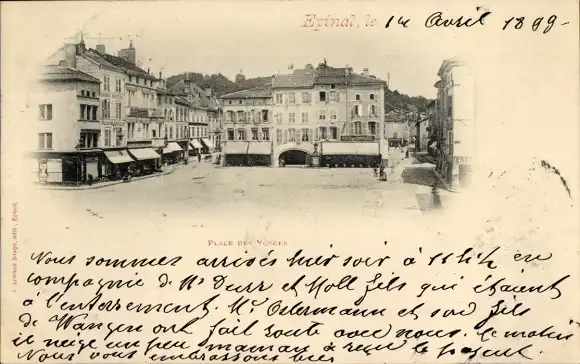 Epinal, le 1er Avril 1899-
PLACE DES VOSGES
J. Arnould Bougel, édit., Epinal.
Nous sommes arrivés hier soir à 11h½ en
compagnie de Ms Durr et Moll fils qui étaient
à l'enterrement. Mr Ostermann et son fils
de Wangen ont fait route avec nous. Ce matin
il neige un peu maman a reçu le paquet.
Nous vous embrassons bien